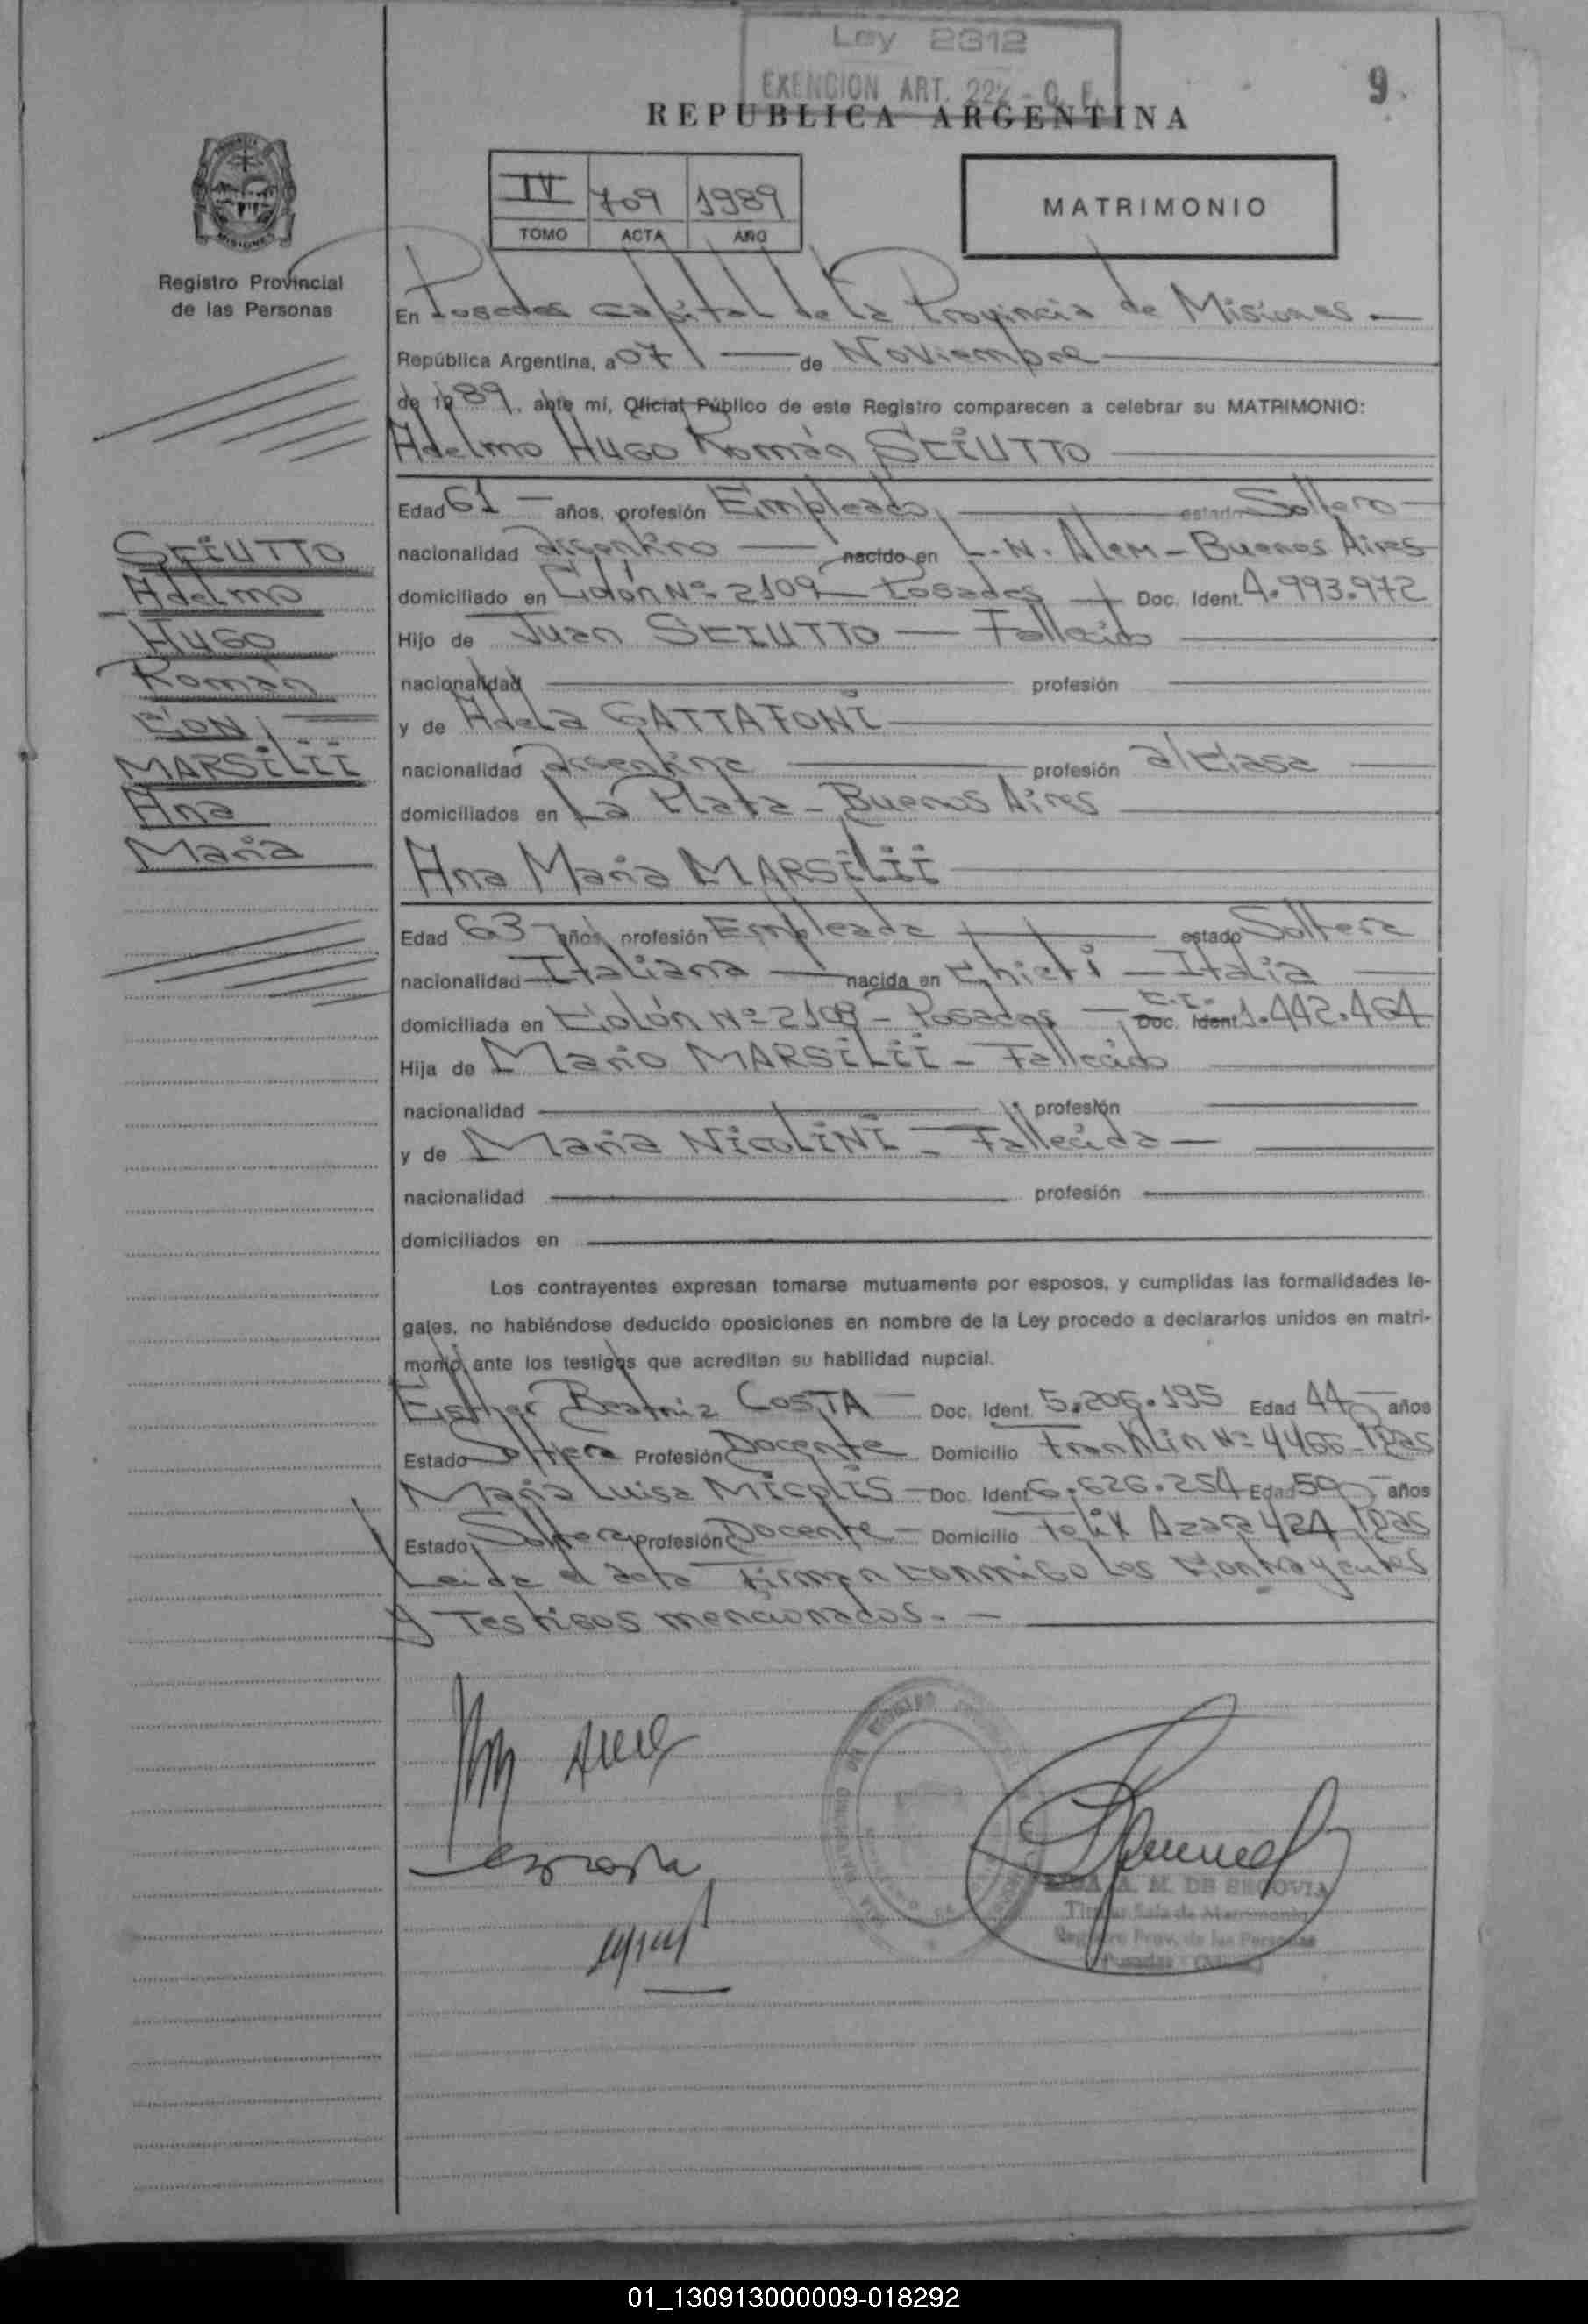 Ley 2312
EXENCION ART. 222 - C. F.
9
REPUBLICA ARGENTINA
IV 709 1989
TOMO ACTA AÑO
MATRIMONIO
Registro Provincial
de las Personas
En Posadas capital de la Provincia de Misiones
República Argentina, a 07 de Noviembre
de 1989, ante mí, Oficial Público de este Registro comparecen a celebrar su MATRIMONIO:
Adelmo Hugo Román SCIUTTO
Edad 61 años, profesión Empleado estado Soltero
nacionalidad Argentino nacido en L.N. Alem - Buenos Aires
domiciliado en Colón Nº 2109 - Posadas Doc. Ident. 4.993.972
Hijo de Juan SCIUTTO - Fallecido
nacionalidad profesión
y de Adela GATTAFONI
nacionalidad Argentina profesión a/casa
domiciliados en La Plata - Buenos Aires
SCIUTTO
Adelmo
Hugo
Román
CON
MARSILII
Ana
María
Ana María MARSILII
Edad 63 años, profesión Empleada estado Soltera
nacionalidad Italiana nacida en Chieti - Italia
domiciliada en Colón Nº 2109 - Posadas C.I. Doc. Ident. 1.442.464
Hija de Mario MARSILII - Fallecido
nacionalidad profesión
y de María NICOLINI - Fallecida
nacionalidad profesión
domiciliados en
Los contrayentes expresan tomarse mutuamente por esposos, y cumplidas las formalidades le-
gales, no habiéndose deducido oposiciones en nombre de la Ley procedo a declararlos unidos en matri-
monio, ante los testigos que acreditan su habilidad nupcial.
Esther Beatriz COSTA Doc. Ident. 5.206.195 Edad 44 años
Estado Soltera Profesión Docente Domicilio Franklin Nº 4466 - Pdas
María Luisa MICOLIS Doc. Ident. 6.626.254 Edad 50 años
Estado Soltera Profesión Docente Domicilio Felix Azara 484 Pdas
Leida el acta Firman conmigo los contrayentes
y Testigos mencionados.
A. M. DE SEGOVIA
Titular Sala de Matrimonios
Registro Prov. de las Personas
Posadas
01_130913000009-018292